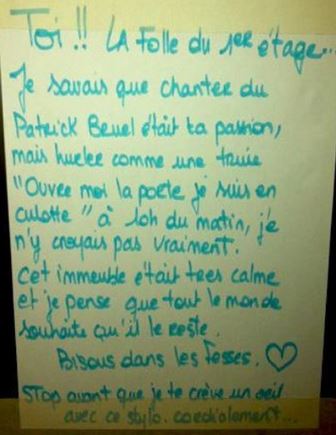 Toi !! LA Folle du 1er étage...
Je savais que chanter du
Patrick Bruel était ta passion,
mais hurler comme une truie
"Ouvre moi la porte je suis en
culotte" à 1oh du matin, j'e
n'y croyais pas vraiment.
Cet immeuble était très calme
et je pense que tout le monde
souhaite qu'il le reste.
Bisous dans les fesses. ♡
STOP avant que je te crève un oeil
avec ce stylo. cordialement...